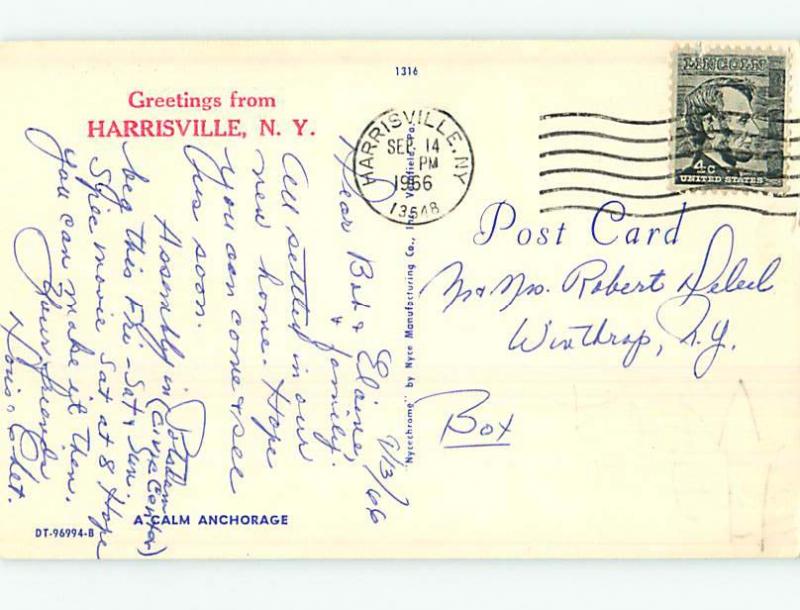 1316
Greetings from
HARRISVILLE, N. Y.
HARRISVILLE, NY
SEP 14
PM
1966
13648
LINCOLN
4c
UNITED STATES
Post Card
Mr & Mrs. Robert
Winthrop, N.Y.
Box
9/13/66
Dear Bob & Elaine,
& family.
All settled in our
new home. Hope
you can come & see
us soon.
Assembly in Potsdam
(Civic Center)
beg this Fri-Sat & Sun.
Spec movie Sat at 8 Hope
you can make it then.
Your friends
Lois & Chet.
"Nycechrome" by Nyce Manufacturing Co., Inc. Vernfield, Pa.
A CALM ANCHORAGE
DT-96994-B